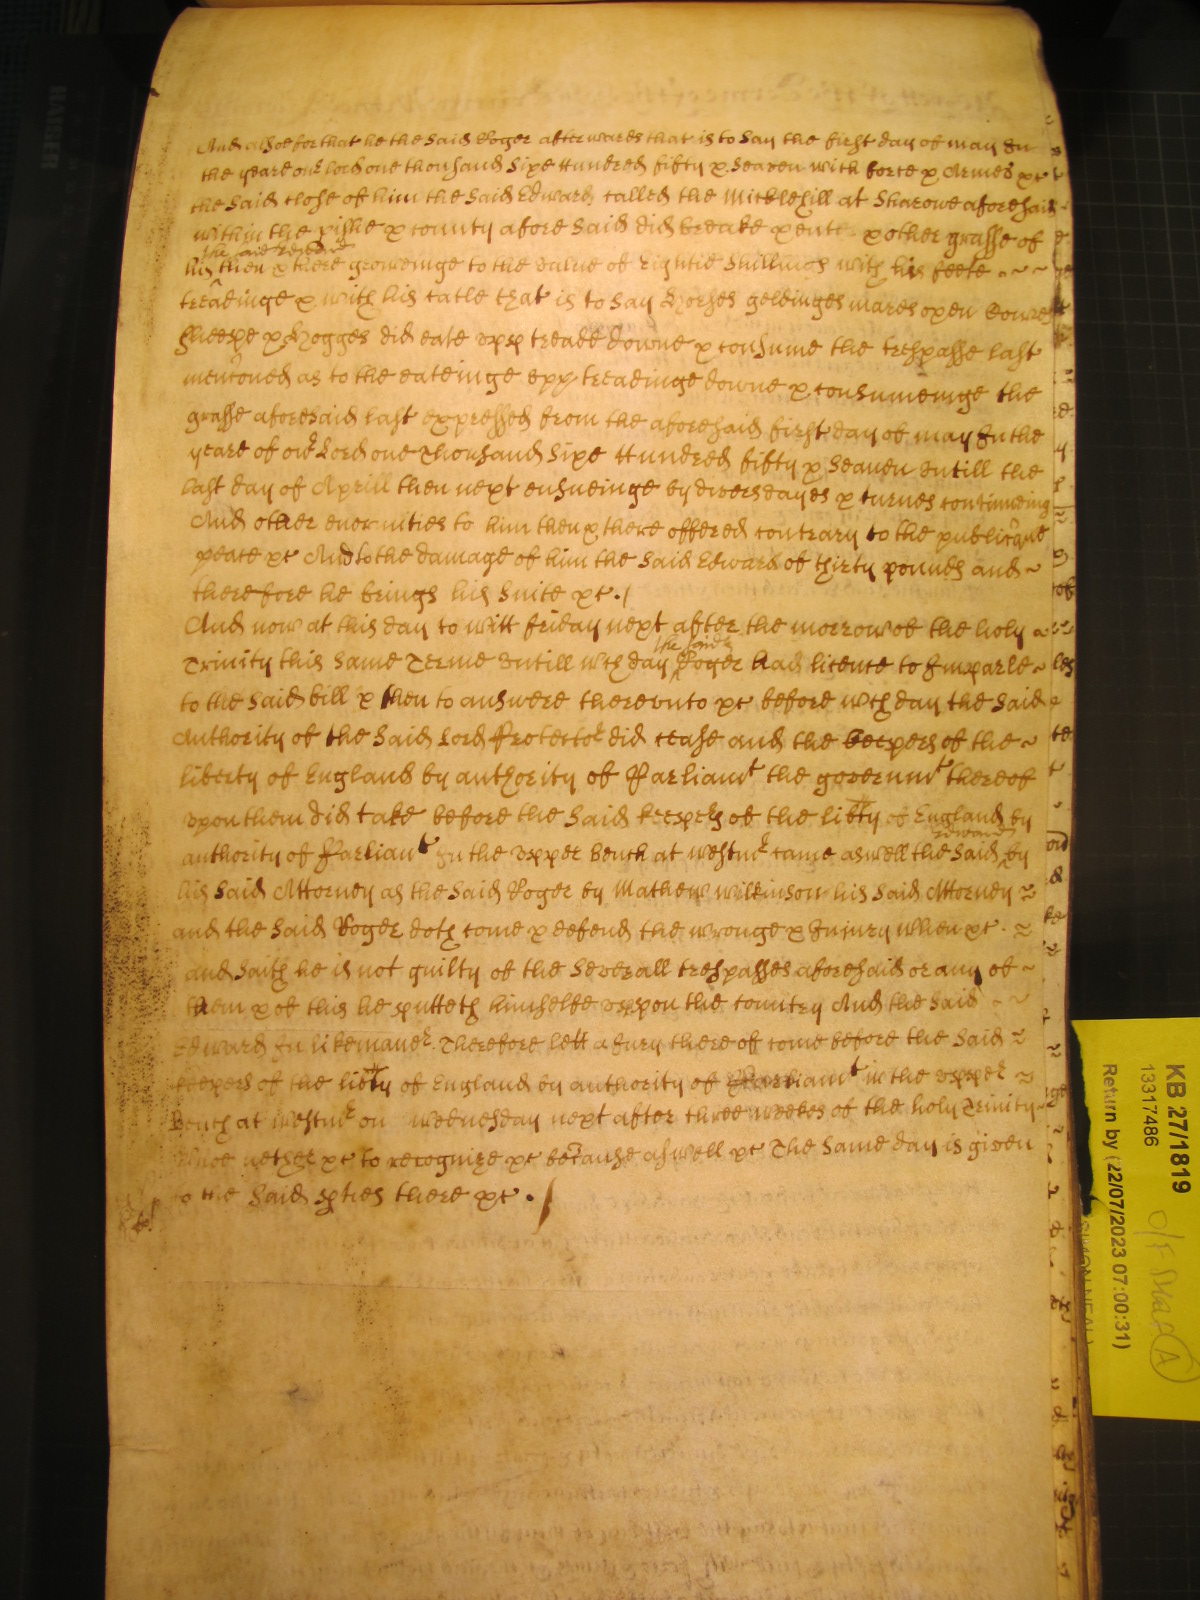 And alsoe for that he the said Roger afterwards that is to say the first day of may In
the yeare our lord one thousand sixe Hundred fifty & seaven with force & Armes &c
the said close of him the said Edward called the Micklehill at Sharowe aforesaid
within the pishe & county afore said did breake & enter & other grasse of
the said Edward
his then & there groweinge to the value of Eightie shillings with his feete
treadinge & with his catle that is to say Horses geldinges mares oxen Cowes
sheepe & Hogges did eate upp treade downe & consume the trespasse last
mencioned as to the eateinge upp treadinge downe & consumeinge the
grasse aforesaid last expressed from the aforesaid first day of may In the
yeare of our Lord one Thousand sixe Hundred fifty & seaven untill the
last day of Aprill then next ensueinge by divers dayes & turnes continueing
And other enormities to him then & there offered contrary to the publique
peace &c And to the damage of him the said Edward of thirty pounds and
therefore he brings his suite &c
And now at this day to witt friday next after the morrow of the holy
the said
Trinity this same Terme untill wch day Roger had licence to Imparle
to the said bill & then to answere thereunto &c before wch day the said
Authority of the said Lord Protector did cease and the keepers of the
liberty of England by authority of Parliamt the governmt thereof
upon them did take before the said keepers of the libty of England by
Edward
authority of Parliamt In the upper Bench at westmr came aswell the said by
his said Attorney as the said Roger by Mathew wilkinson his said Attorney
and the said Roger doth come & defend the wronge & Injury when &c
and saith he is not guilty of the severall trespasses aforesaid or any of
them & of this he putteth himselfe uppon the country And the said
Edward In like maner Therefore lett a Jury there of come before the said
keepers of the libty of England by authority of Parliamt in the upper
Bench at westmr on wednesday next after three weekes of the holy Trinity
&c to recognize &c because aswell &c The same day is given
to the said pties there &c
KB 27/1819
13317486
Return by (22/07/2023 07:00:31)
A